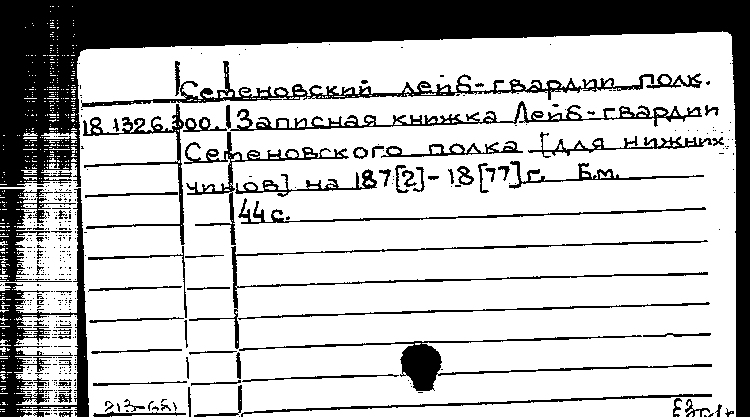 Семеновский лейб-гвардии полк.
18.132.6.300. Записная книжка Лейб-гвардии
Семеновского полка [для нижних
чинов] на 187[2]-18[77]г. Б.м.
44 с.